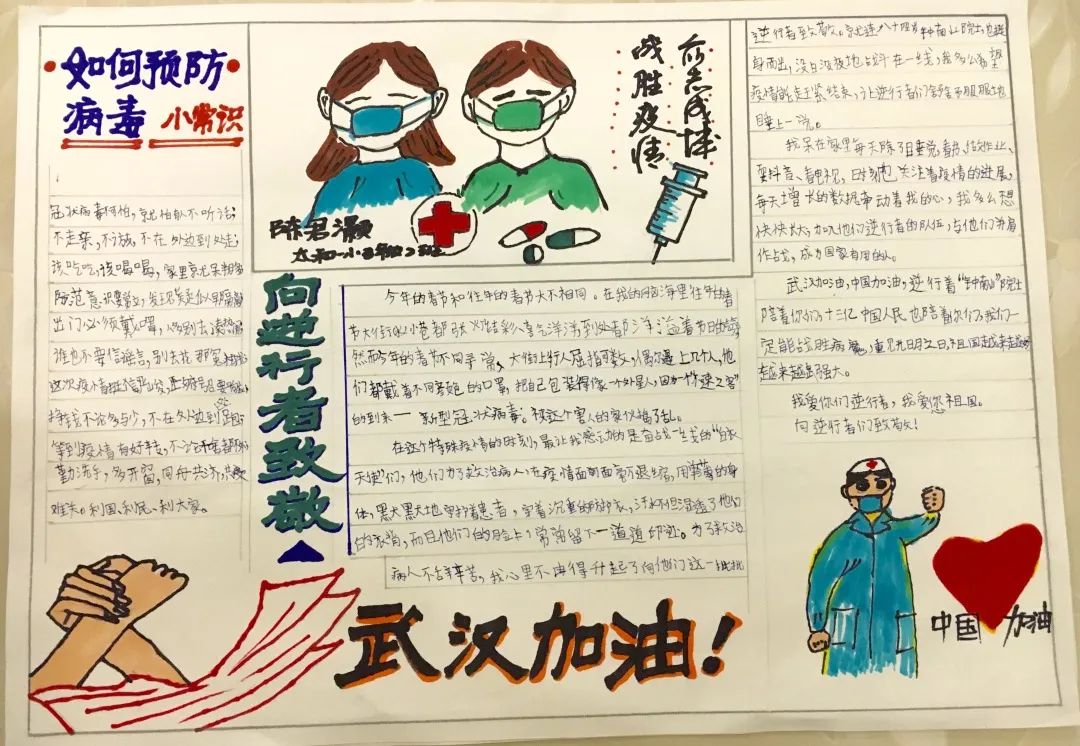 如何预防
病毒 小常识
冠状病毒可怕，就怕人不听话；
不走亲，不访友，不在外边到处走；
该吃吃，该喝喝，家里就
防范意识要
出门必须戴口罩，
谁也不要信谣言，
这次疫情
不论多与少，不在外边到
等到疫情有好转，不
勤洗手，多开窗，同舟共济，
难关。利国、利民、利大家。
众志成城
战胜疫情
陈君灏
太和一小
向逆行者致敬
今年的春节和往年的春节大不相同。在我的脑海里往年的春
节大街小巷都张灯结彩喜气洋洋到处都洋溢着节日的
然而今年的春节不同寻常，大街上行人屈指可数，偶尔遇上几个人，他
们都戴着不同
的口罩，把自己包装得像一个外星人，因为“不速之客”
的到来——新型冠状病毒。被这个害人的家伙搞了乱。
在这个特殊疫情的时刻，最让我感动的是奋战一线的“白衣
天使”们，他们为了救治病人，在疫情面前面
退缩，用
的身
体，黑天黑地守护着患者，穿着沉重的防护衣，汗水不但湿透了他们
的衣背，而且他们的脸上，常常留下一道道印迹。为了救治
病人不辞辛苦，我心里不由得升起了向他们这一批批
逆行者致敬。就连八十四岁钟南山院士，也挺
身而出，没日没夜地战斗在一线，我多么希望
疫情能赶紧结束，让逆行者们舒舒服服地
睡上一觉。
我呆在家里每天除了睡觉、看书、写作业、
耍抖音、看电视，时刻也关注着疫情的进展，
每天增长的数据牵动着我的心，我多么想
快快长大，加入他们逆行者的队伍，与他们并肩
作战，成为国家有用的人。
武汉加油，中国加油，逆行着“钟南山”院士
陪着你们，十三亿中国人民也陪着你们，我们一
定能战胜病毒，重见光明之日，祖国越来越
越来越强大。
我爱你们逆行者，我爱您祖国。
向逆行者们致敬！
武汉加油！
中国 加油